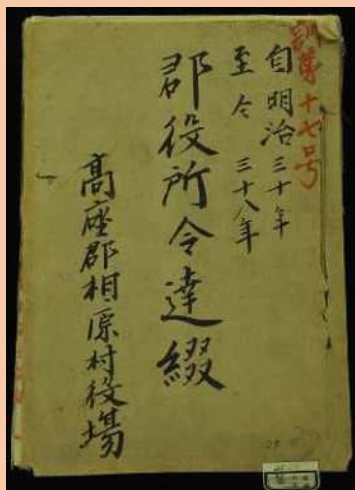 訓第十七号
自明治三十年
至仝三十八年
郡役所令達綴
高座郡相原村役場